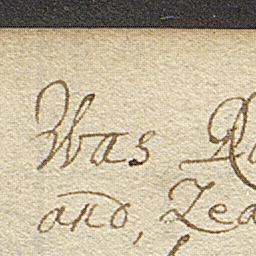 Was
and, Zea